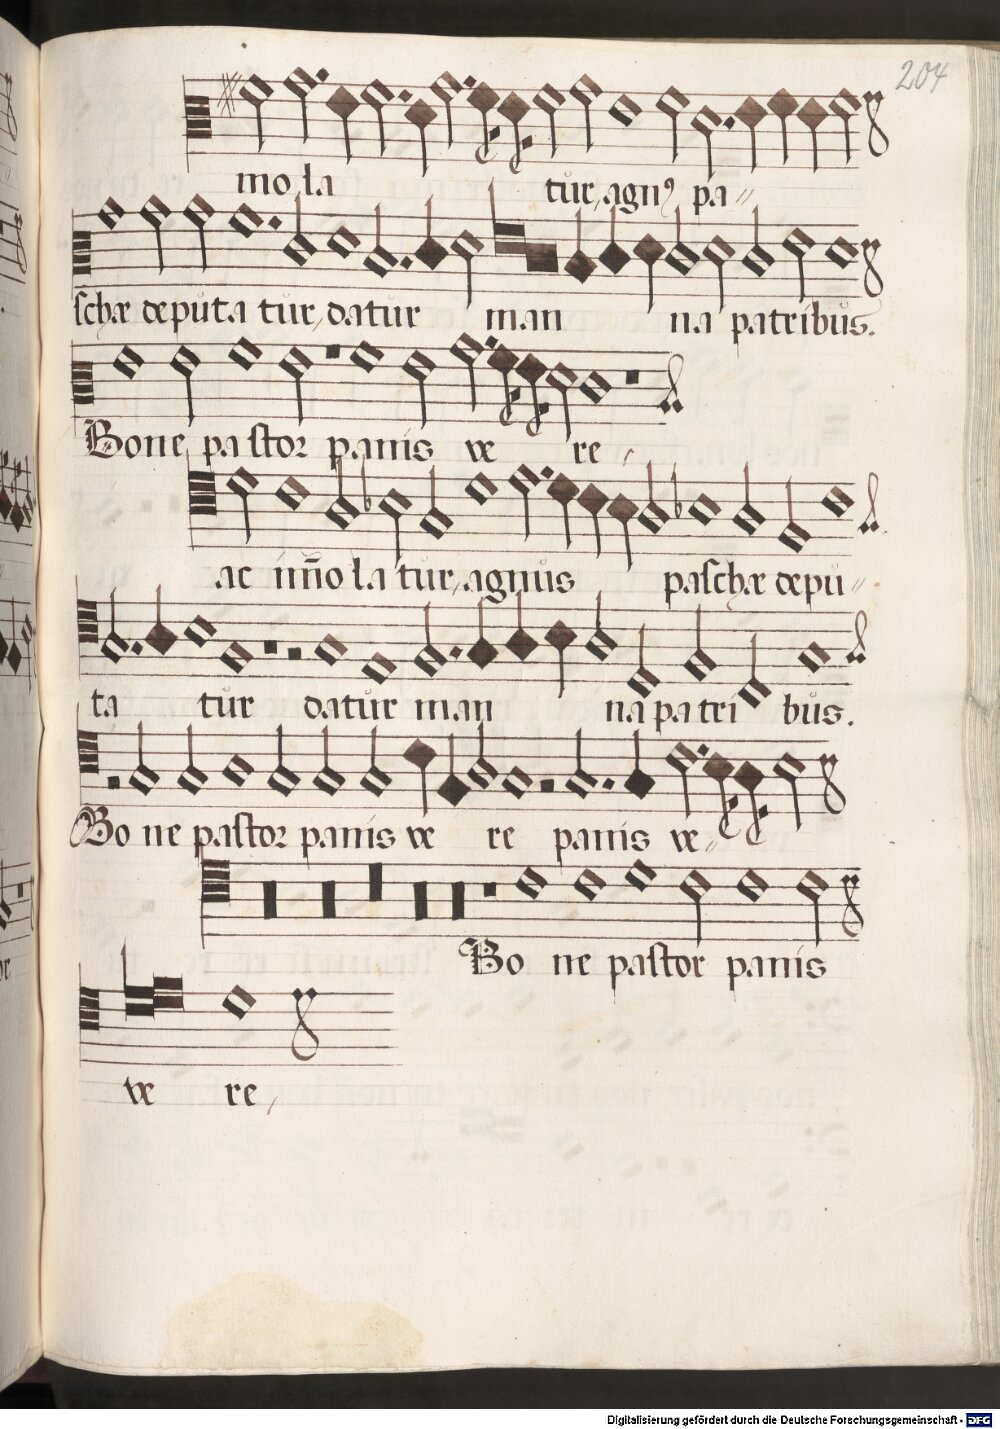 204
mo la tur, agnꝰ pa〃
schæ deputa tur, datur man na patribus.
Bone pastor panis ve re,
ac im̃o la tur, agnus paschæ depu〃
ta tur datur man na patri bus.
Bo ne pastor panis ve re panis ve〃
Bo ne pastor panis
ve re,
Digitalisierung gefördert durch die Deutsche Forschungsgemeinschaft - DFG